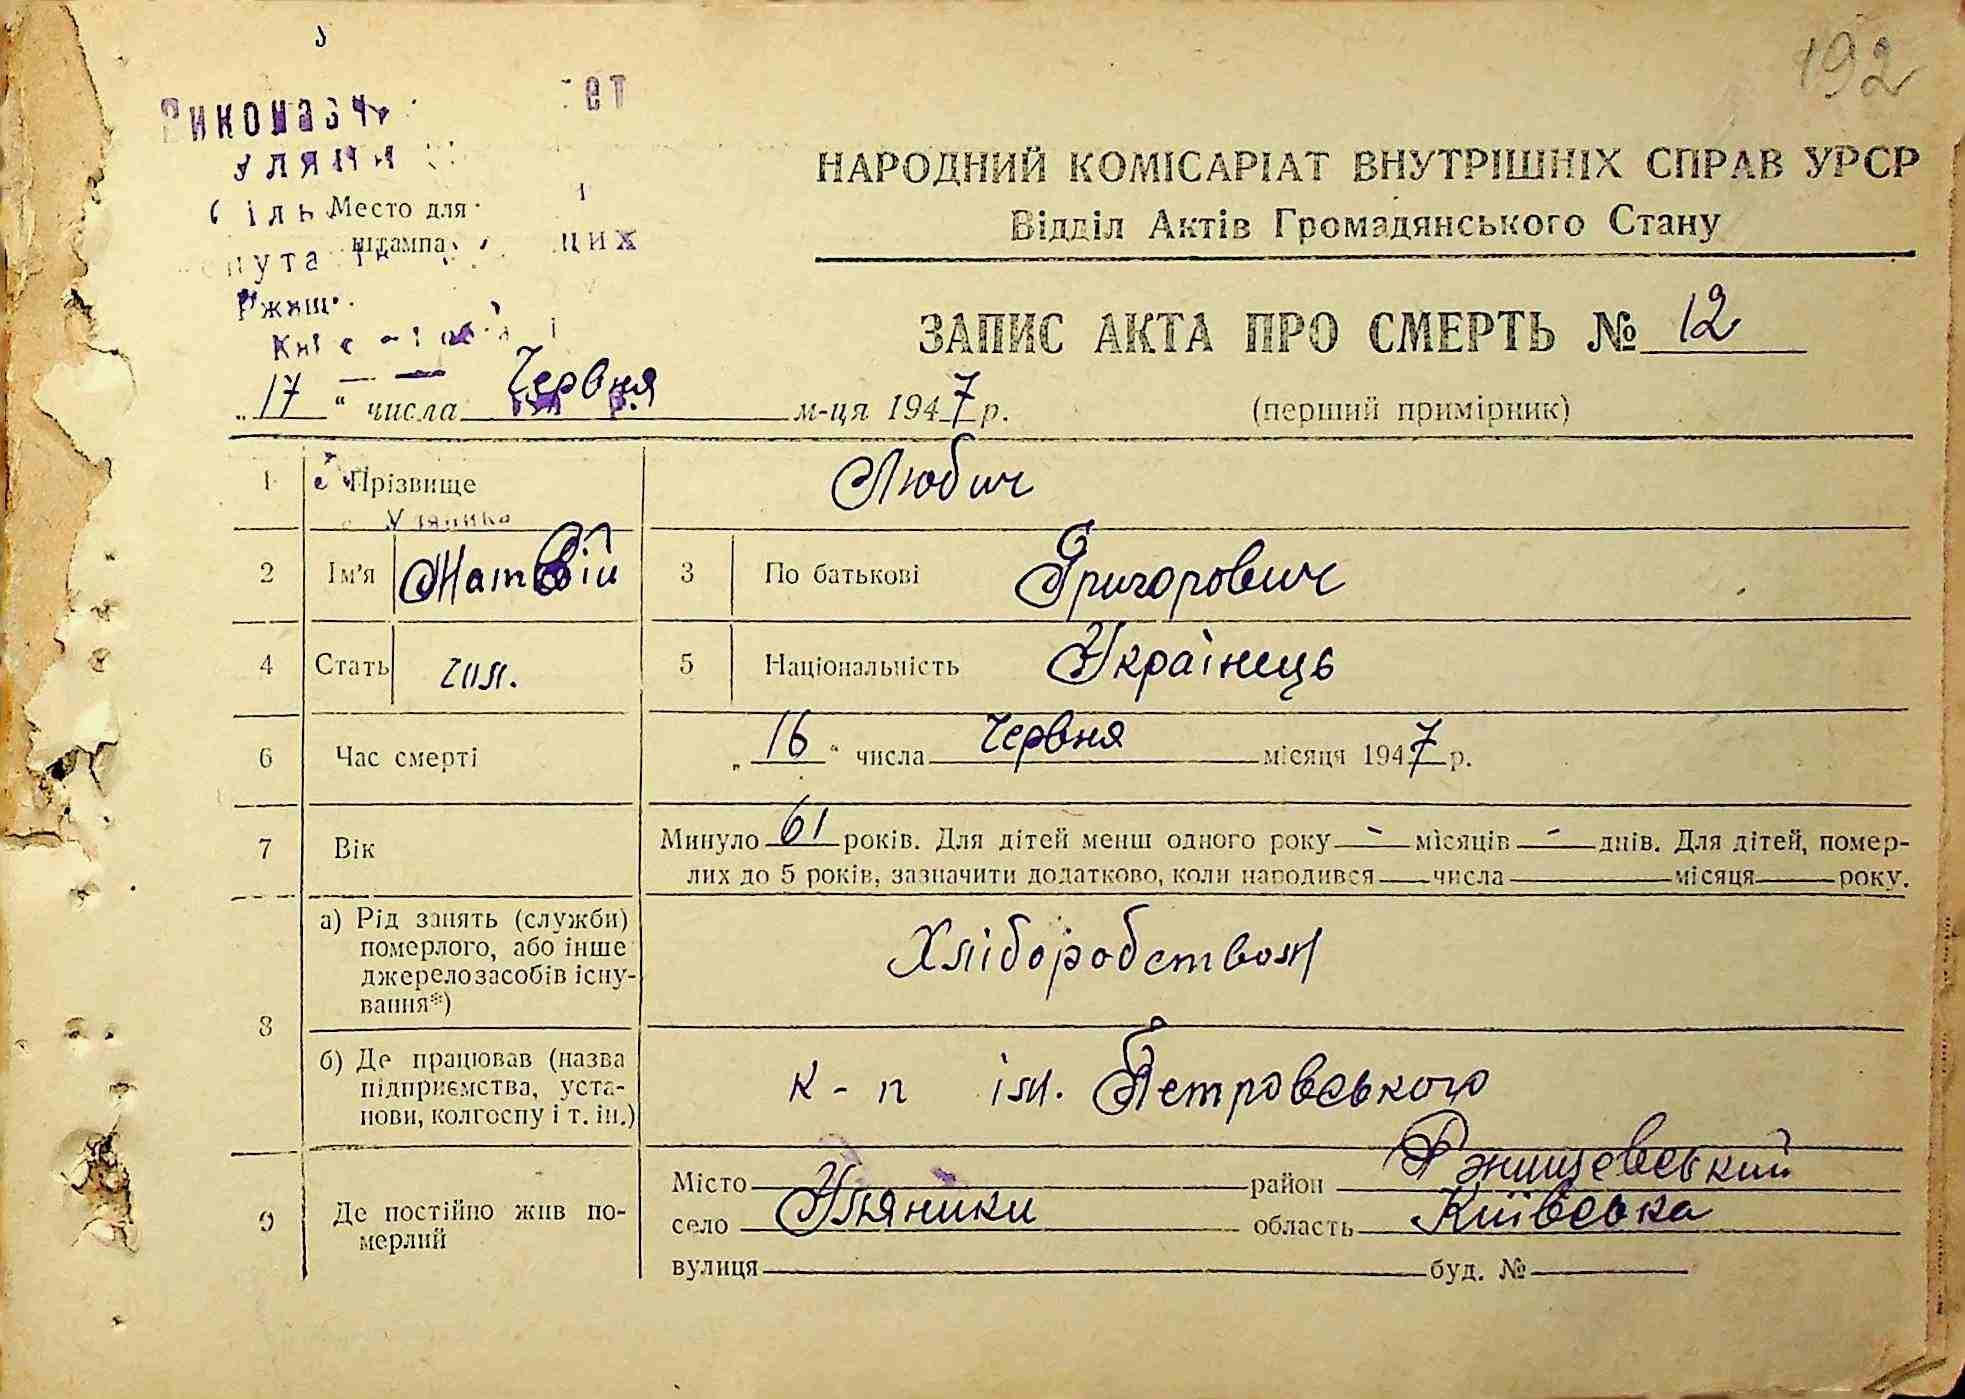 192
НАРОДНИЙ КОМІСАРІАТ ВНУТРІШНІХ СПРАВ УРСР
Відділ Актів Громадянського Стану
Место для
штампа
цих
ЗАПИС АКТА ПРО СМЕРТЬ № 12
„17“ числа Червня м-ця 1947 р. (перший примірник)
1 Прізвище Любич
2 Ім'я Матвій 3 По батькові Григорович
4 Стать чол. 5 Національність Українець
6 Час смерті „16“ числа Червня місяця 1947 р.
7 Вік Минуло 61 років. Для дітей менш одного року - місяців - днів. Для дітей, помер-
лих до 5 років, зазначити додатково, коли народився числа місяця року.
8 а) Рід занять (служби)
померлого, або інше
джерело засобів існу-
вання*)
Хліборобством
б) Де працював (назва
підприємства, уста-
нови, колгоспу і т. ін.)
к-п ім. Петровського
9 Де постійно жив по-
мерлий
Місто район Ржищевський
село Уляники область Київська
вулиця буд. №